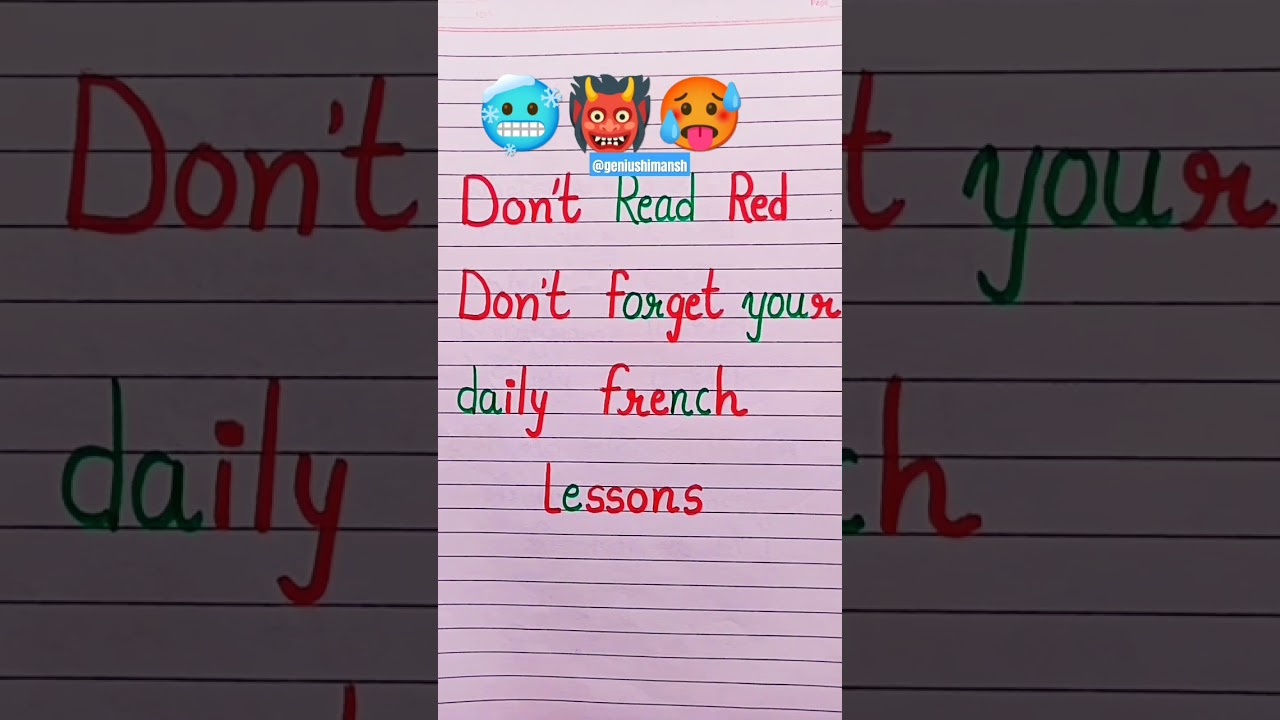 @geniushimansh
Don't Read Red
Don't forget your
daily french
lessons